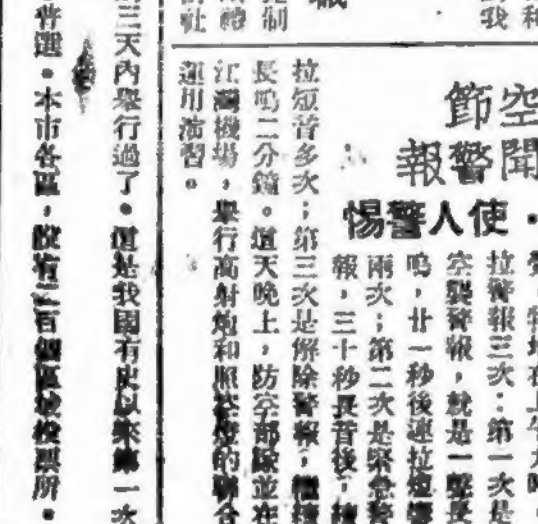 和
我
空
節
聞警報
・使人警惕
拉警報三次：第一次是
空襲警報，就是一聲長
鳴，廿一秒後連拉短
兩次；第二次是緊急警
報，三十秒長音後，
拉短音多次；第三次是解除警報，
長鳴二分鐘。這天晚上，防空部隊並在
江灣機場，舉行高射炮和照空燈的聯合
運用演習。
制
社
三天內舉行過了。這是我國有史以來第一次
普選。本市各區，設有二百個區域投票所。